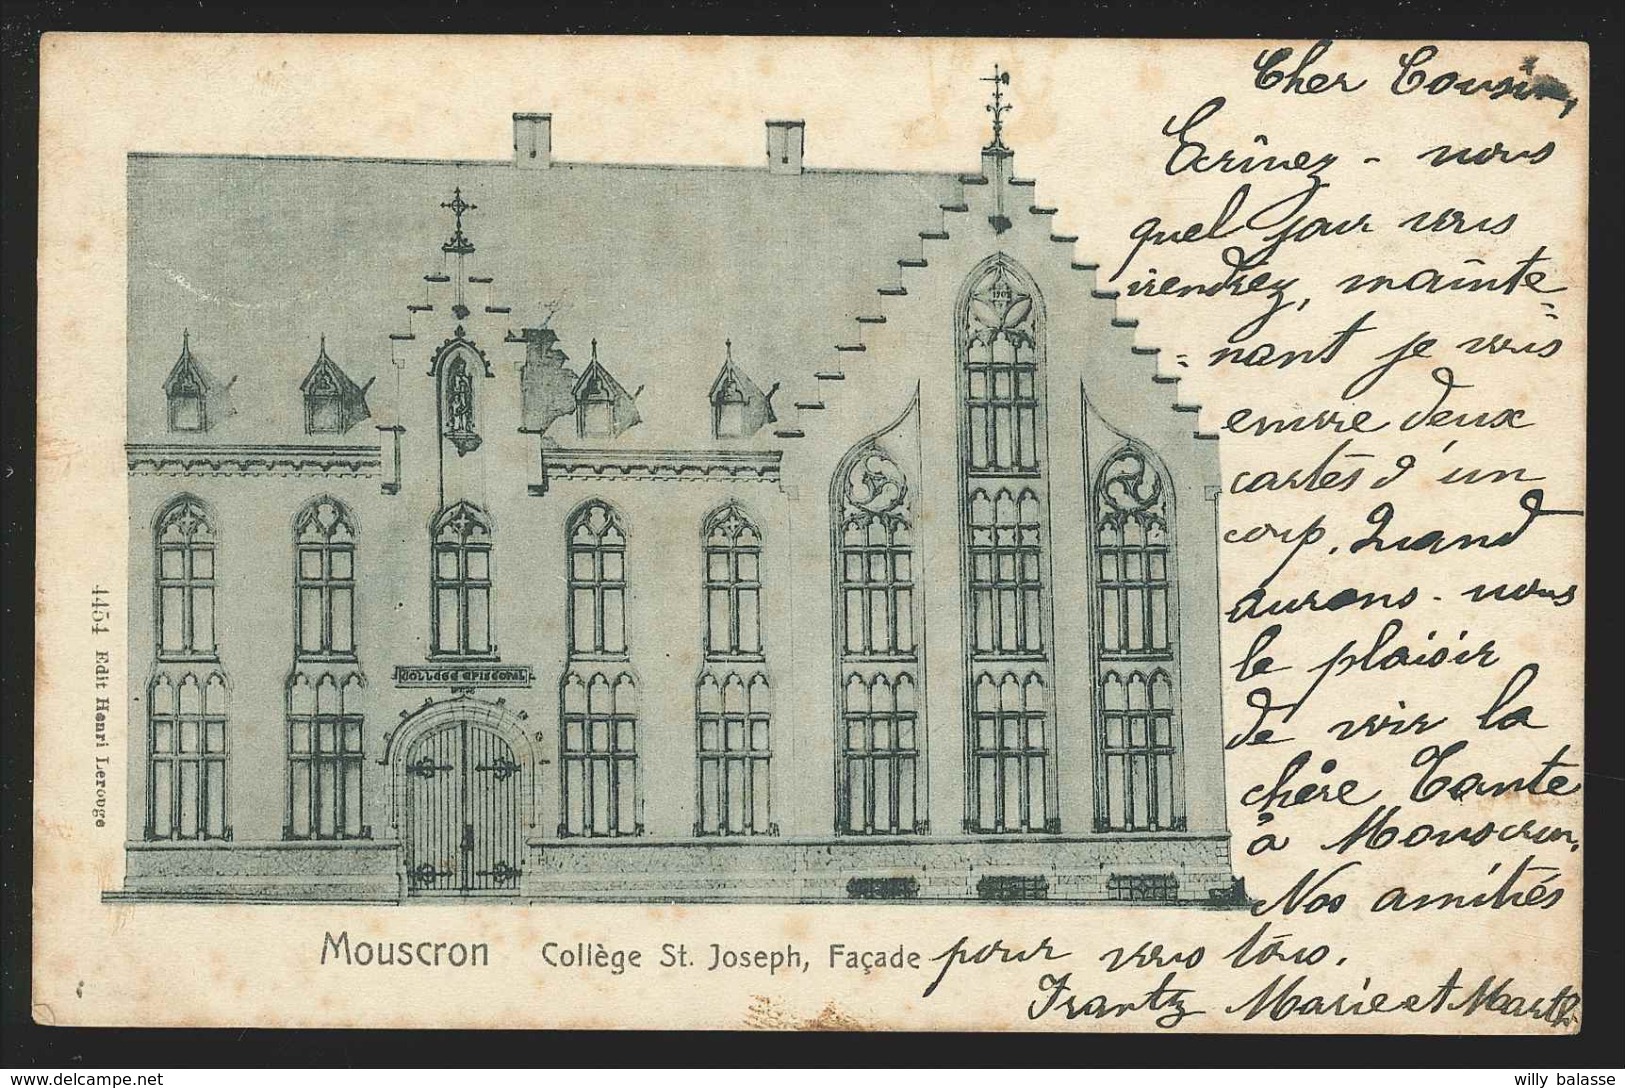 Cher Cousin,
Ecrivez-nous
quel jour vous
viendrez, mainte=
=nant je vous
envoie deux
cartes d'un
coup. Quand
aurons-nous
le plaisir
de voir la
chère Tante
à Mouscron.
Nos amitiés
pour vous tous.
Frantz Marie et Marth
1902
COLLEGE EPISCOPAL
4454 Edit Henri Lerouge
Mouscron Collège St. Joseph, Façade
willy balasse